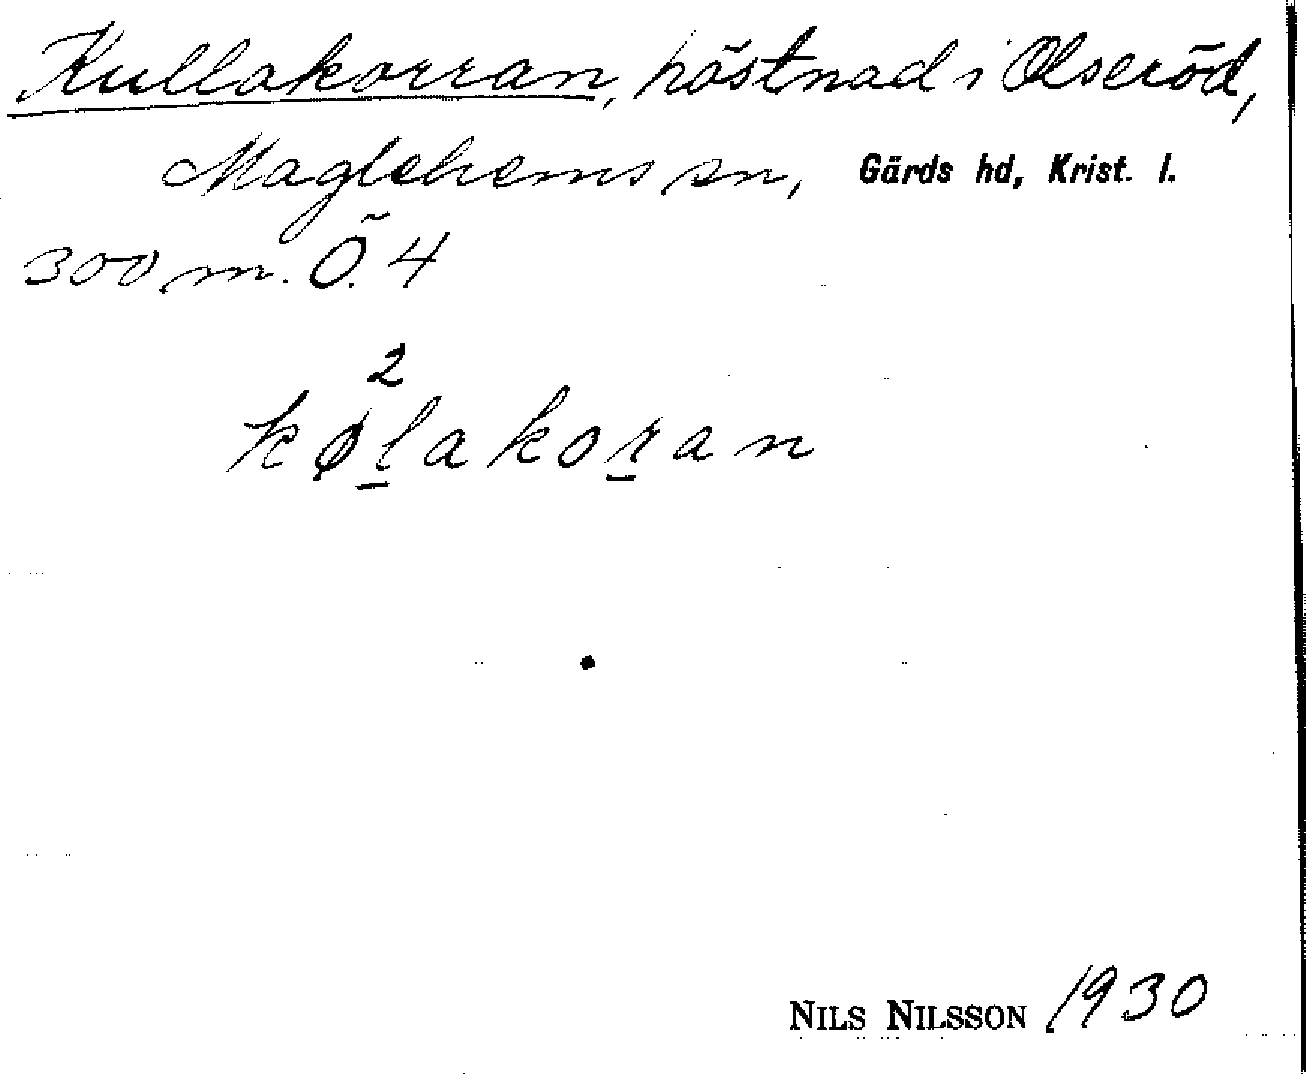 Kullakorran, höstnad i Olseröd,
Maglehems sn, Gärds hd, Krist. l.
300 m. Ö. 4
2
kølakoran
NILS NILSSON 1930